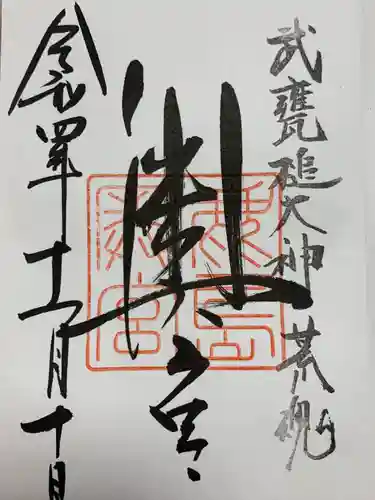 武甕槌大神 荒魂
奥宮
鹿島
奥宮
令和四年十二月十日